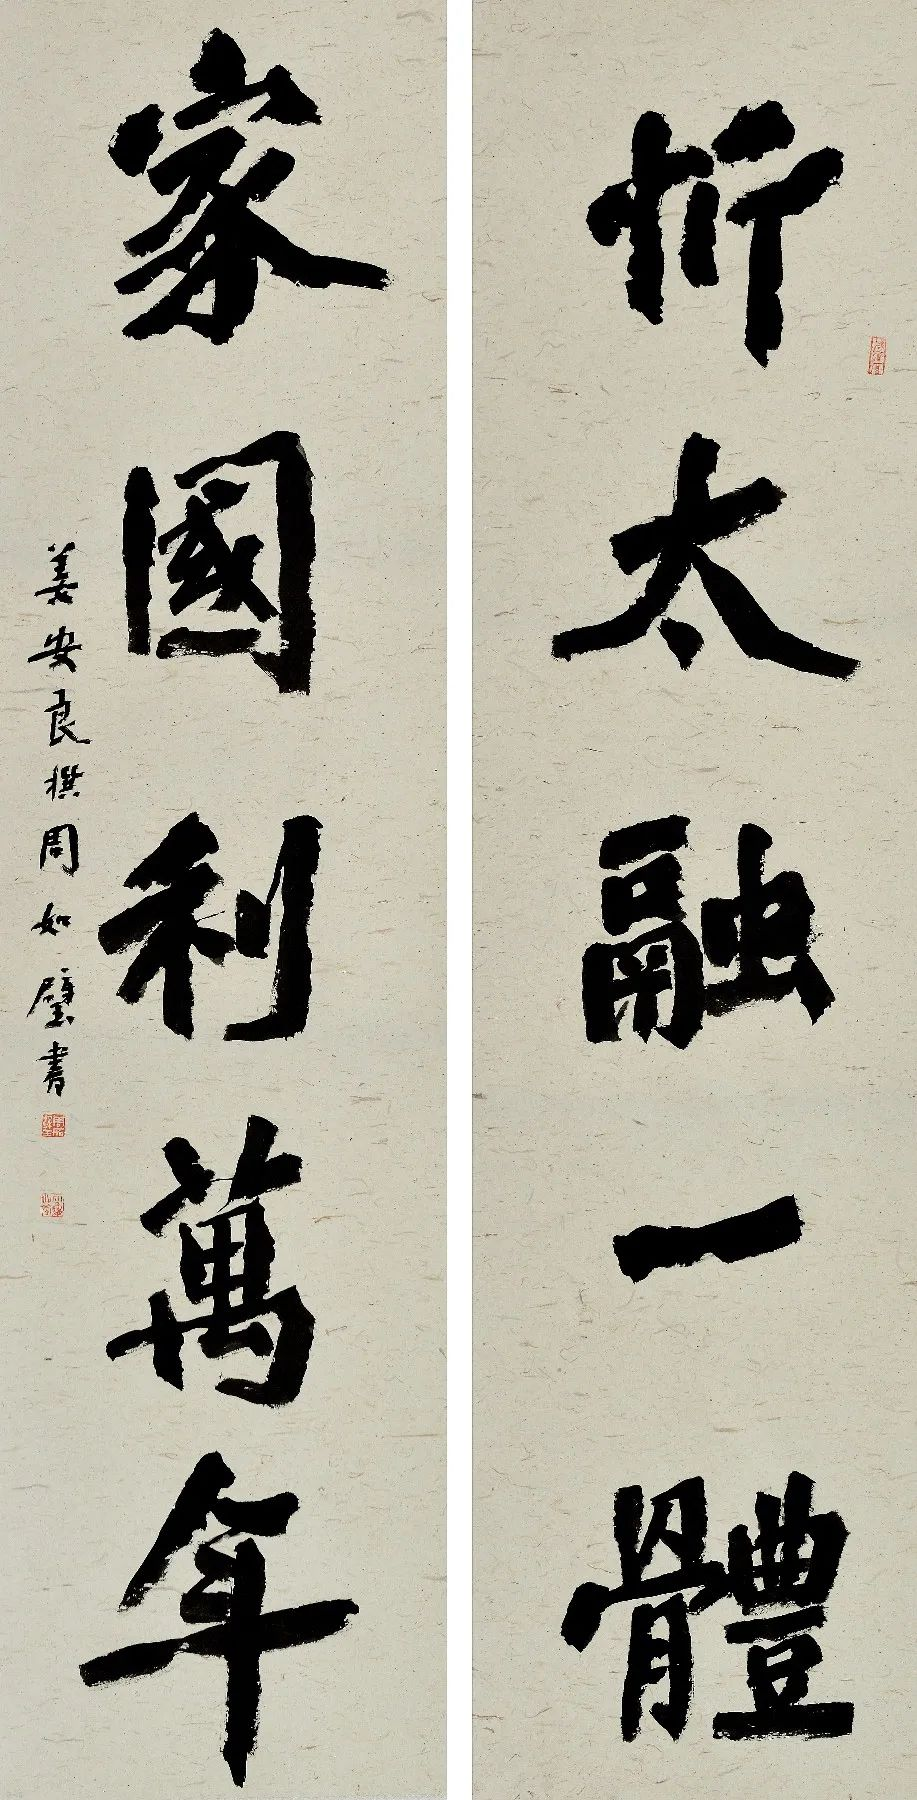 忻太融一體
家國利萬年
姜安良撰周如璧書